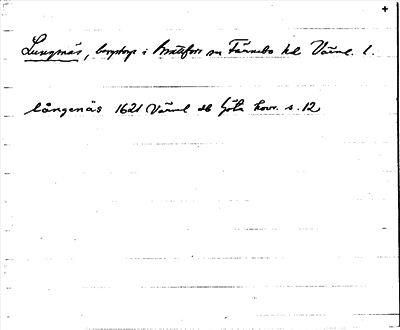 +
Lungnäs, bergstorp i Brattfors sn Färnebo hd Värml. l.
långenäs 1621 Värml ob Göta hovr. s. 12